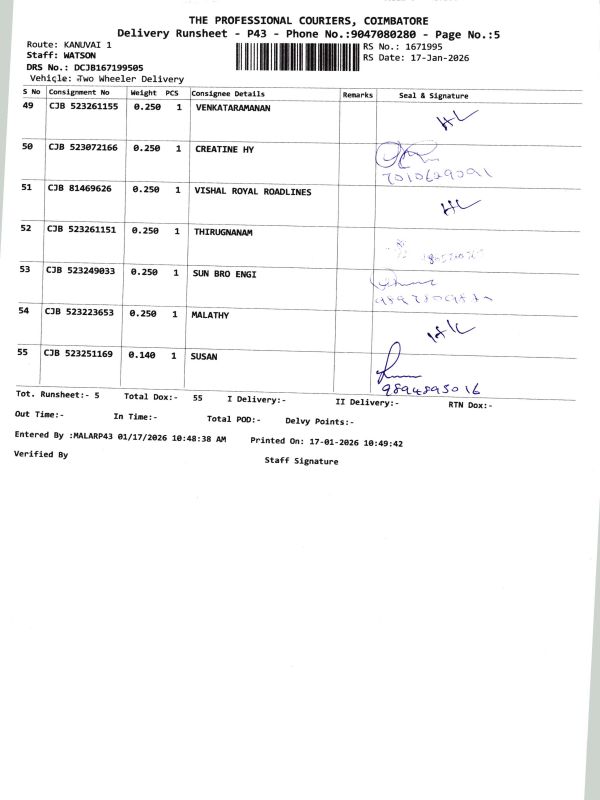 THE PROFESSIONAL COURIERS, COIMBATORE
Delivery Runsheet - P43 - Phone No.:9047080280 - Page No.:5
Route: KANUVAI 1 RS No.: 1671995
Staff: WATSON RS Date: 17-Jan-2026
DRS No.: DCJB167199505
Vehicle: Two Wheeler Delivery
S No Consignment No Weight PCS Consignee Details Remarks Seal & Signature
49 CJB 523261155 0.250 1 VENKATARAMANAN
50 CJB 523072166 0.250 1 CREATINE HY
7010629091
51 CJB 81469626 0.250 1 VISHAL ROYAL ROADLINES
52 CJB 523261151 0.250 1 THIRUGNANAM
53 CJB 523249033 0.250 1 SUN BRO ENGI
54 CJB 523223653 0.250 1 MALATHY
55 CJB 523251169 0.140 1 SUSAN
9894895016
Tot. Runsheet:- 5 Total Dox:- 55 I Delivery:- II Delivery:- RTN Dox:-
Out Time:- In Time:- Total POD:- Delvy Points:-
Entered By :MALARP43 01/17/2026 10:48:38 AM Printed On: 17-01-2026 10:49:42
Verified By Staff Signature